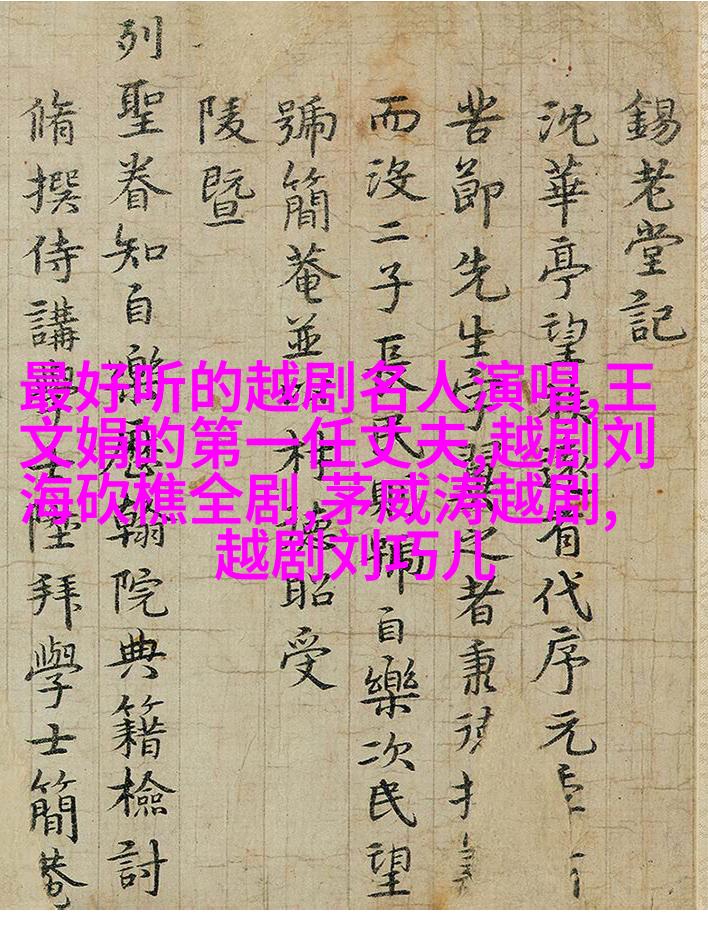 錫老堂記
沈華亭望有代序元
苦節先生字之者秉
而沒二子長民則號自樂次民望
號簡菴並昭受
陵暨
列聖眷知自樂歷翰院典籍檢討
脩撰侍講學士陞拜學士簡菴
最好听的越剧名人演唱,王
文娟的第一任丈夫,越剧刘
海砍樵全剧,茅威涛越剧,
越剧刘巧儿